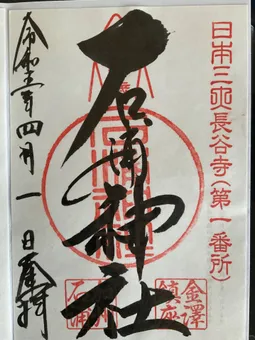 日本三大長谷寺(第一番所)
石浦神社
金澤
鎮座
石浦
令和三年四月一日奉拝